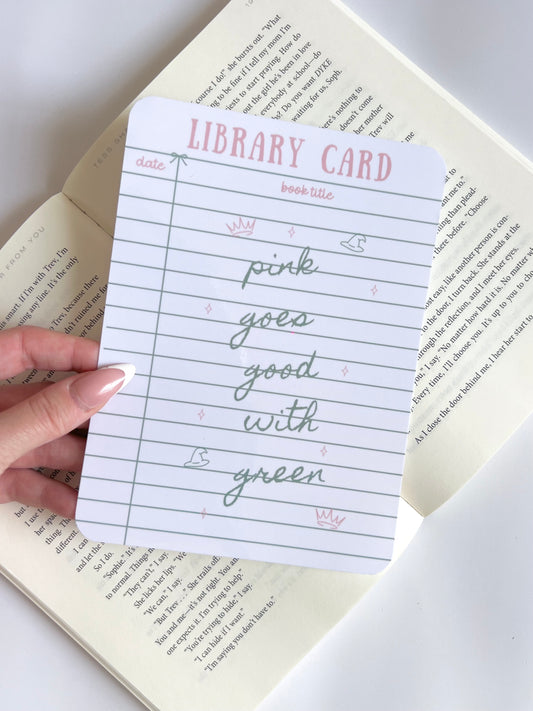 LIBRARY CARD
date
book title
pink
goes
good
with
green
course I do!" she bursts out. "What
ing to be fine if I tell my mom I'm
ients to start praying. How do
out the girl he's been in love
everybody at school—do
b? Do you want DYKE
waiting for us, Soph.
there's nothing to
doesn't come
her mother
Trev will
me to."
than plead-
there before. "Choose
ost easy, like another person is con-
to the door, I turn back. She stands at the
through the reflection, and I meet her eyes.
you," I say. "No matter how hard it is. No matter w
Every time, I'll choose you. It's up to you to cho
As I close the door behind me, I hear her start to
R FROM YOU
smart. If I'm with Trev, I'm
sing any line. It's the only
Trev, because there
n't ruined me for
behind
I use
her spac
thing. Tha
different
I can
and let the
So I do.
"Sophie." It's
to normal. Things
"They can't," I say.
She licks her lips. "We
"We can," I say.
"But Trev . . ." She trails off.
You and me—it's not right. You an
one expects it. I'm trying to help."
"You're trying to hide," I say.
"I can hide if I want."
"I'm saying you don't have to."